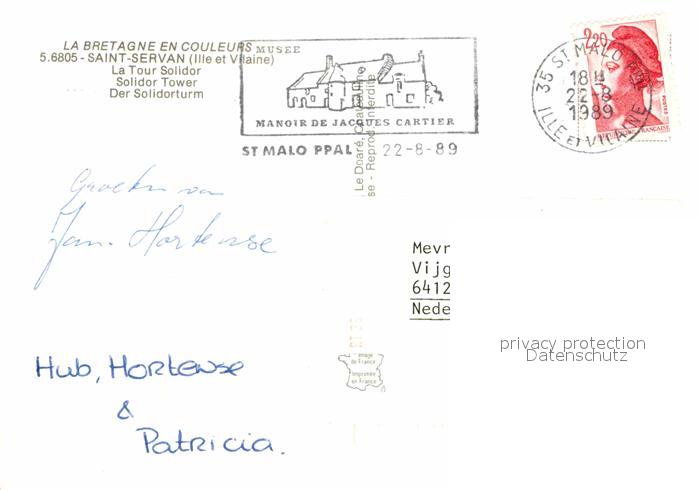 LA BRETAGNE EN COULEURS
5.6805 - SAINT-SERVAN (Ille et Vilaine)
La Tour Solidor
Solidor Tower
Der Solidorturm
MUSEE
MANOIR DE JACQUES CARTIER
ST MALO PPAL 22-8-89
2,20
35 ST MALO
18 H
22-8
1989
ILLE ET VILAINE
Le Doaré,
se - Reprod. interdite
Groeten van
Jan. Hortense
Mevr
Vijg
6412
Nede
privacy protection
Datenschutz
image
de France
Imprimée
en France
Hub, Hortense
&
Patricia.